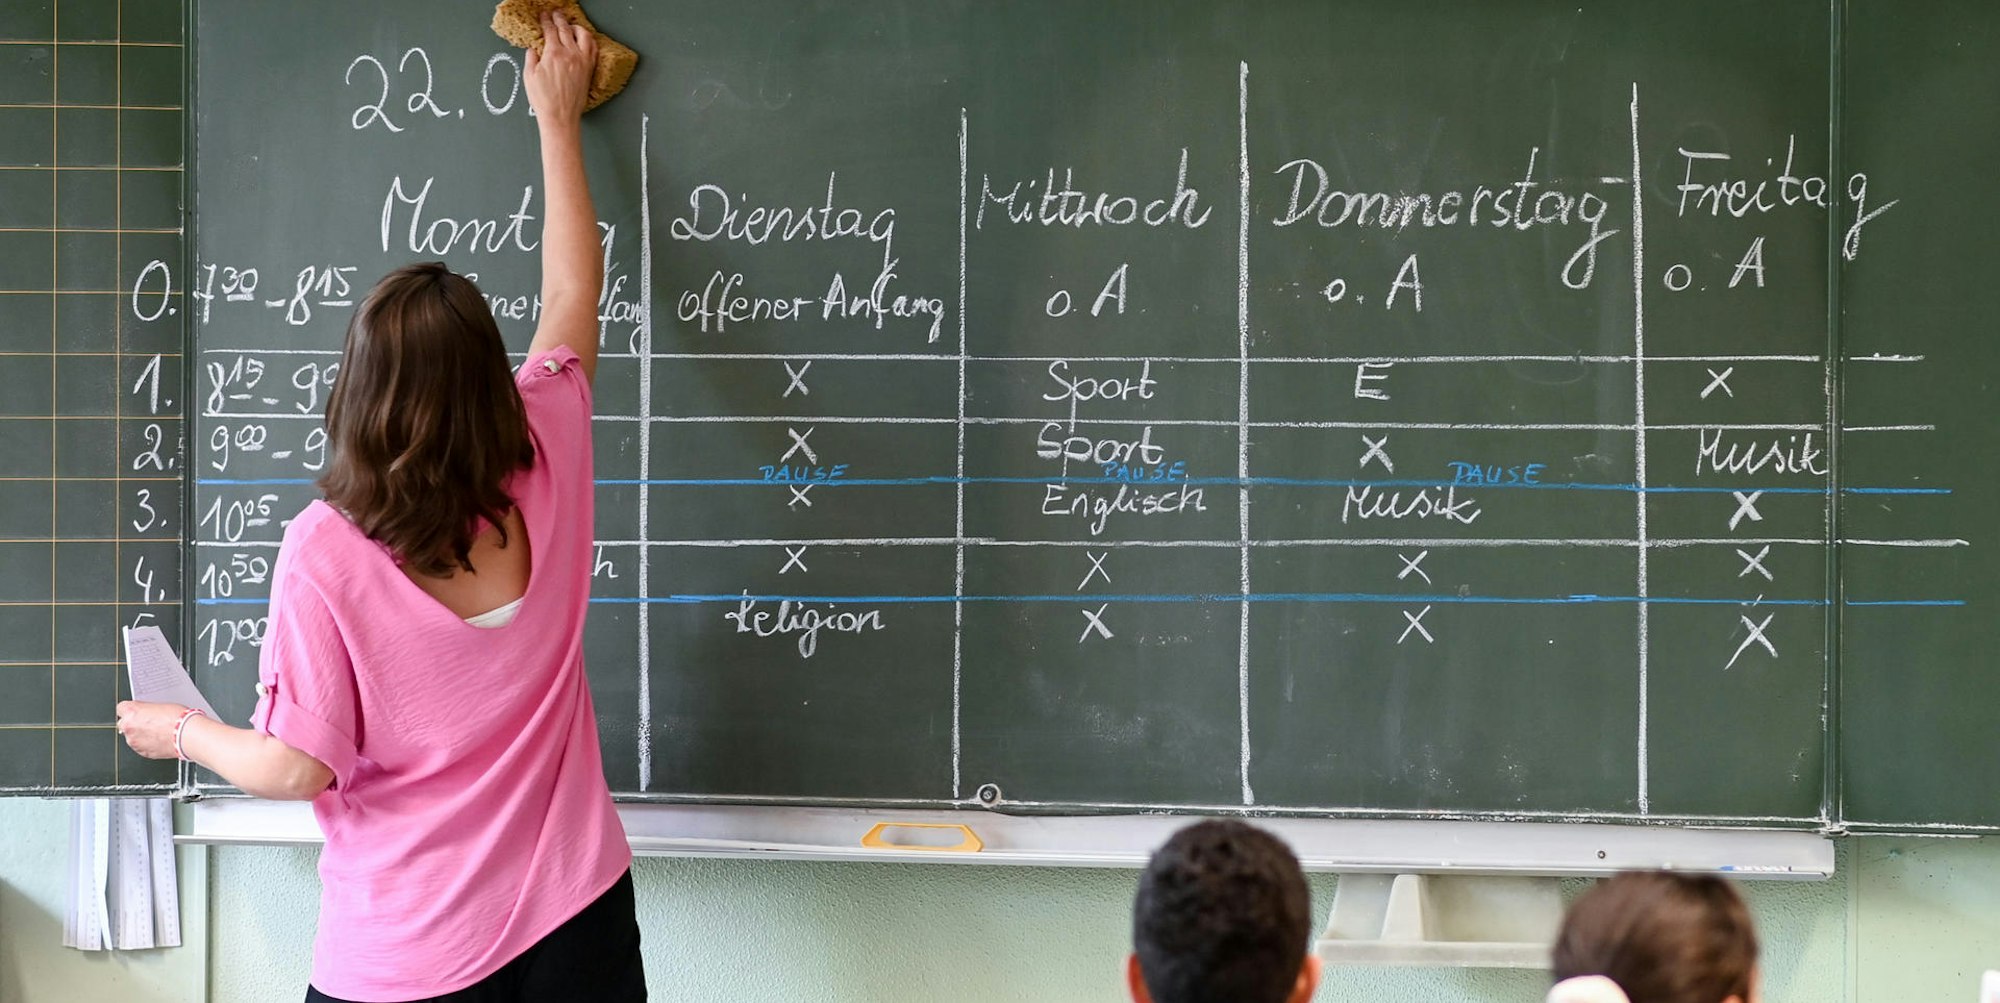 22. 0
Montag Dienstag Mittwoch Donnerstag Freitag
0. 7³⁰ - 8¹⁵ offener Anfang o. A. o. A o. A
1. 8¹⁵ - 9⁰⁰ X Sport E X
2. 9⁰⁰ - 9 X Sport X Musik
PAUSE PAUSE PAUSE
3. 10⁰⁵ - X Englisch Musik X
4. 10⁵⁰ h X X X X
12⁰⁰ Religion X X X